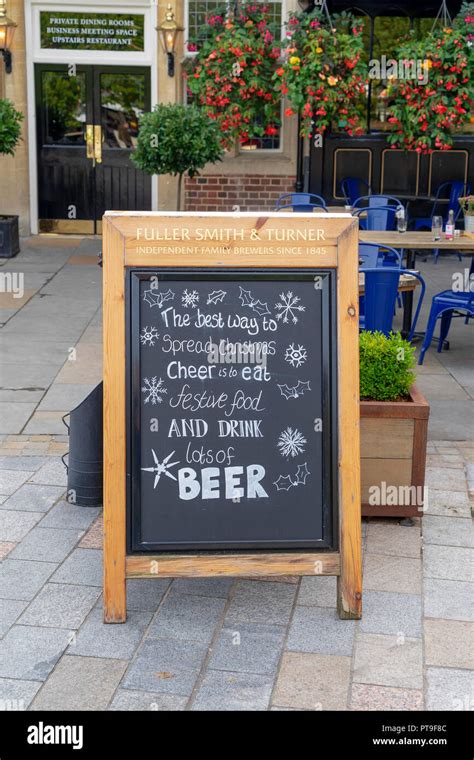 PRIVATE DINING ROOMS
BUSINESS MEETING SPACE
UPSTAIRS RESTAURANT
FULLER SMITH & TURNER
INDEPENDENT FAMILY BREWERS SINCE 1845
The best way to
Spread Christmas
Cheer is to eat
festive food
AND DRINK
lots of
BEER
alamy
Image ID: PT9F8C
www.alamy.com